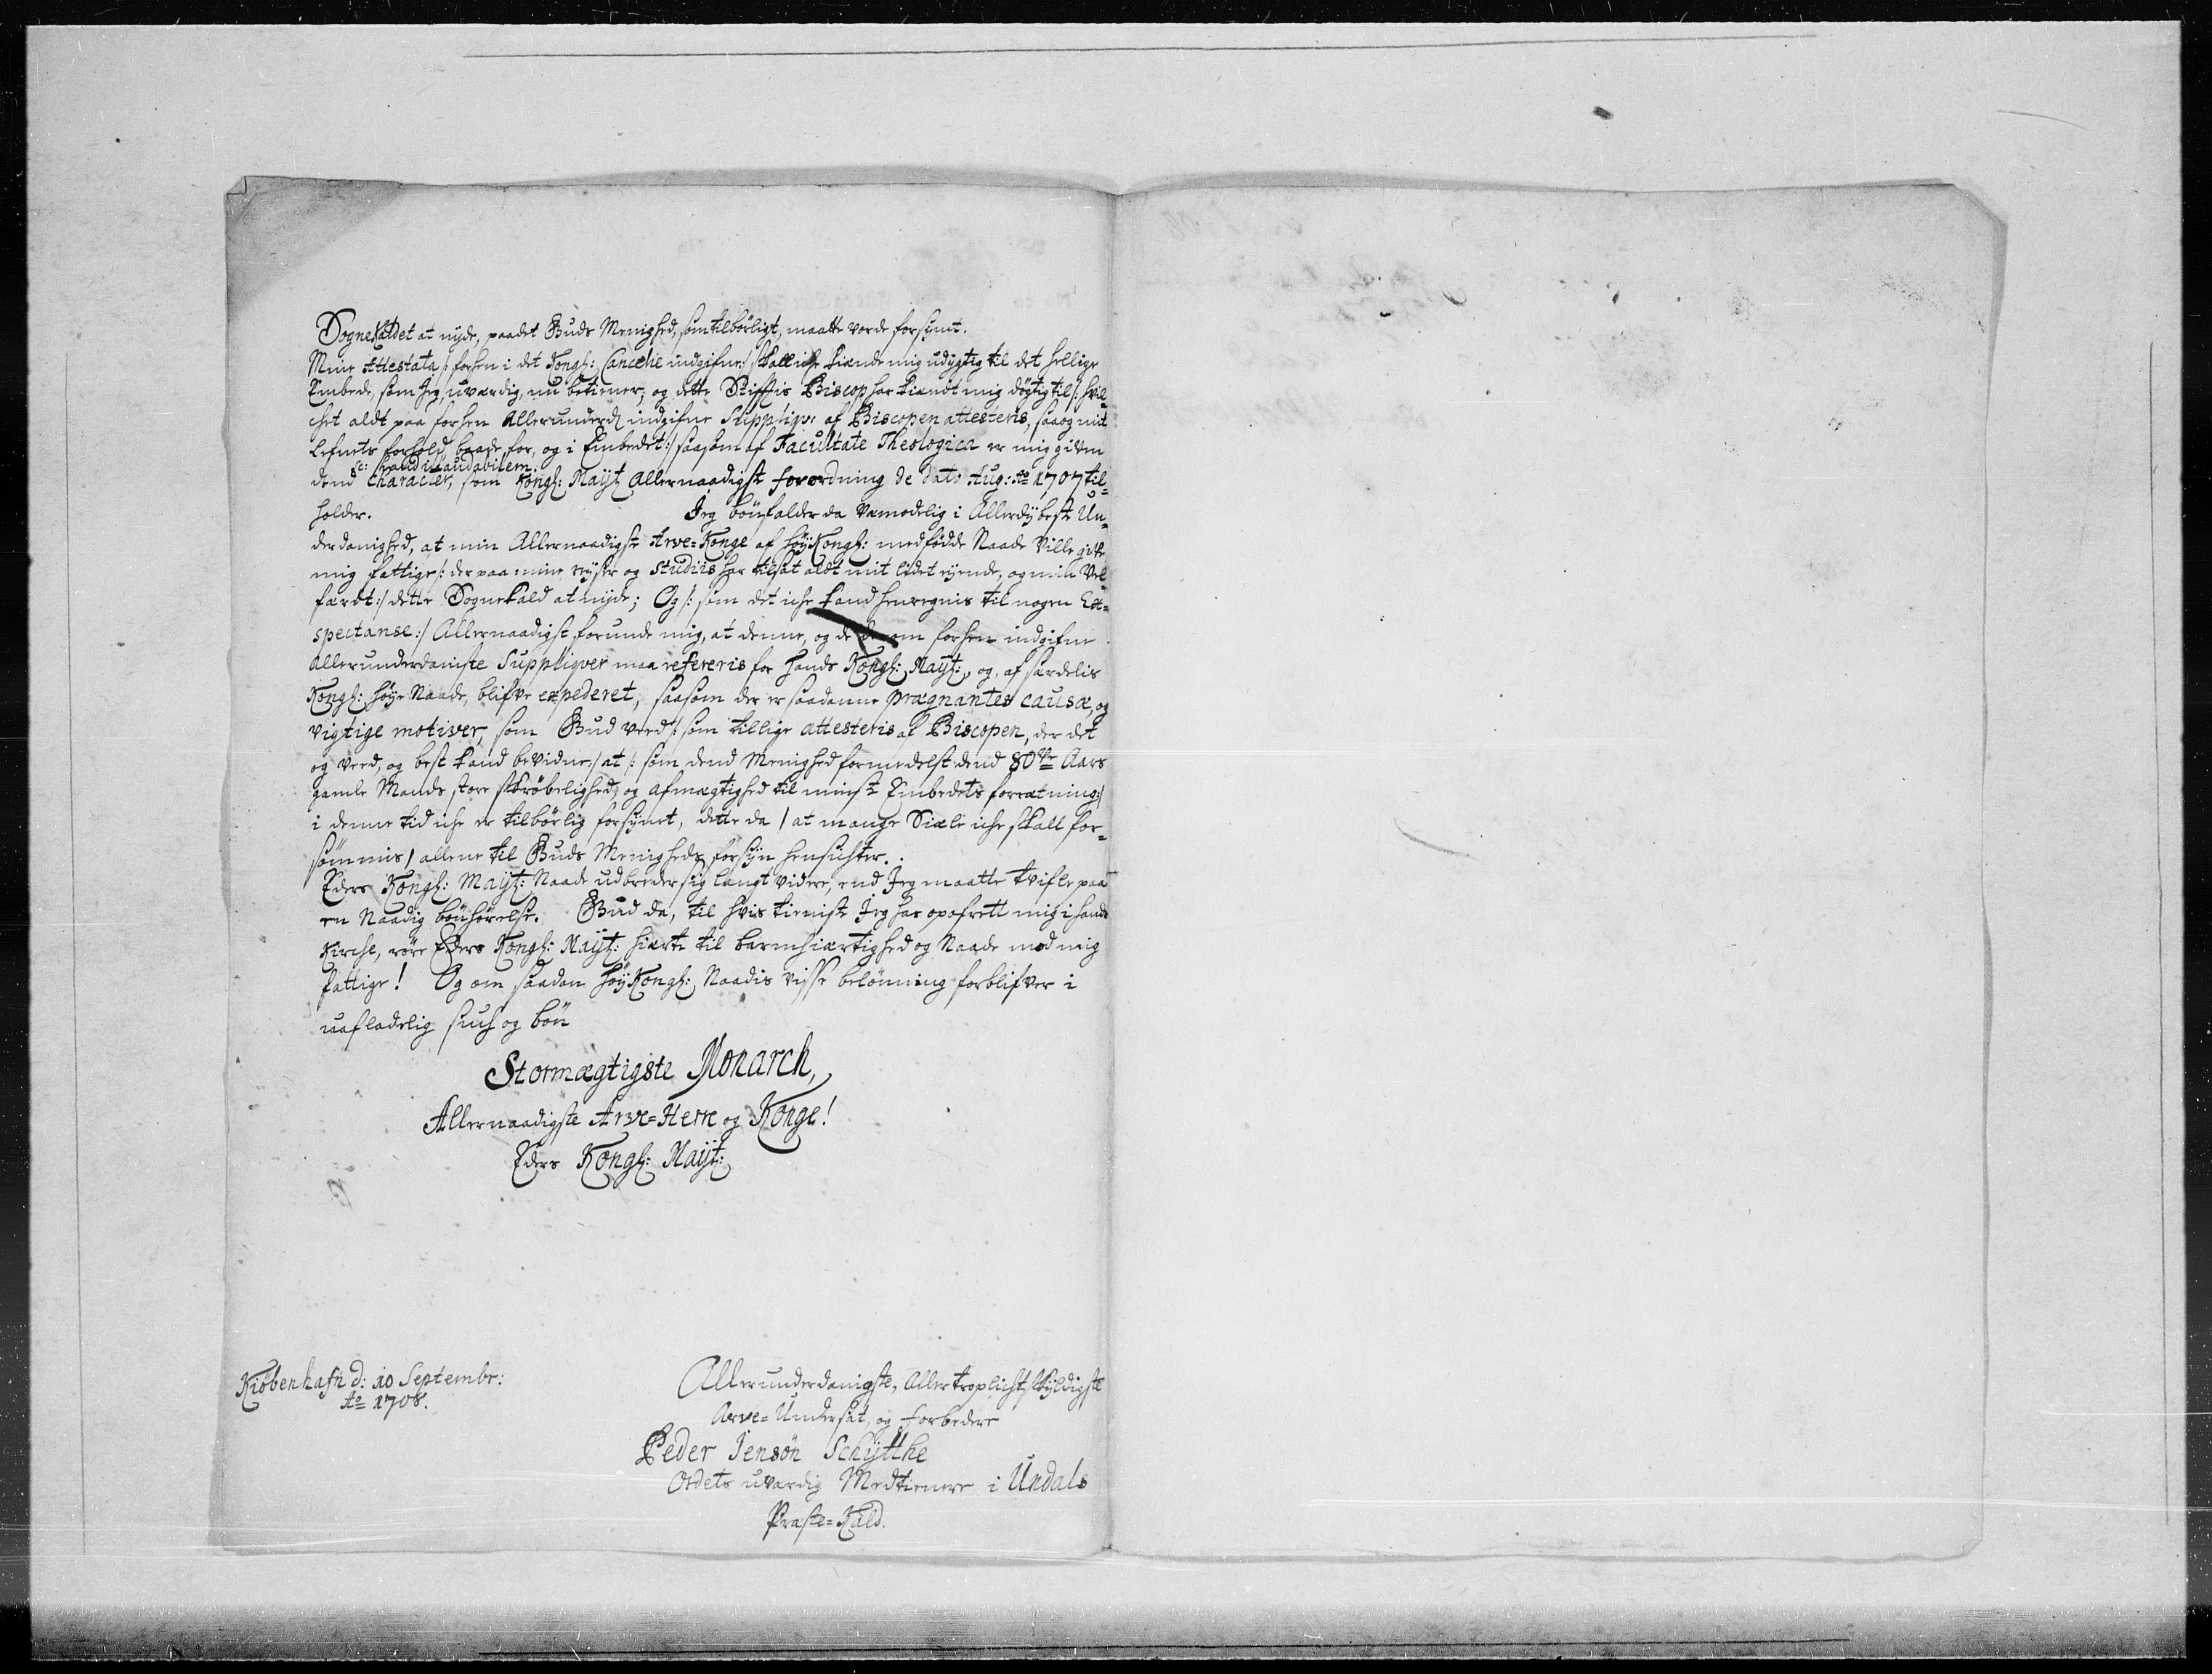 Sognekaldet at nyde, paadet Guds Menighed, som tilbörligt, maatte vorde forsynt.
Mine Attestata /: forhen i det Kongl: Cancelie indgifne :/ skall iche kiende mig udygtig til det hellige
Embede, som Jeg, uværdig, nu betiener; og dette Stifftis Biscop har kiendt mig dögtig til /: hvil-
chet aldt paa forhen Allerunderd indgifne Suppliqver af Biscopen attesteris, saa og mit
Lefnets forhold, baade for, og i Embedet :/ saasom af Facultate Theologica er mig gifven
sc: haud illaudabilem.
dend Character, som Kongl: Mayt Allernaadigst forordning de dato Aug: Ao 1707 til-
holder. Jeg bönfalder da vemodelig i Allerdybeste Un-
derdanighed, at min Allernaadigste Arve-Konge af höyKongl: medfödde Naade ville give
mig fattige /: der paa mine reyser og Studiis har tilsat aldt mit lidet eyende, og min Vel-
færdt :/ dette Sognekald at nyde; Og /: som det iche kand henregnis til nogen Ex-
spectanse :/ Allernaadigst forunde mig, at denne, og de derom forhen indgifne
allerunderdaniste Suppliqver maa refereris for Hands Kongl: Mayt:, og, af særdelis
Kongl: höye Naade, blifve expederet, saasom der er saadanne prægnantes causæ, og
vigtige motiver, som Gud veed /: som tillige attesteris af Biscopen, der det
og veed, og best kand bevidne :/ at /: som dend Menighed formedelst dend 80ve Aars
gamle Mands store skröbelighed, og afmægtighed til minste Embedets forretning :/
i denne tid iche er tilbörlig forsynet, dette da / at mange Siæle iche skall for-
sömmis / allene til Guds Menigheds forsyn hensichter.
Eders Kongl: Mayt: Naade udbreder sig langt videre, end Jeg maatte tvifle paa
en Naadig bönhörelse. Gud da, til hvis tieniste Jeg har opofrett mig i hands
Kirche, röre Eders Kongl: Mayt: hierte til barmhiertighed og Naade mod mig
fattige! Og om saadan höyKongl: Naadis visse belönning forblifver i
uafladelig such og bön
Stormægtigste Monarch,
Allernaadigste Arve-Herre og Konge!
Eders Kongl: Mayt:
Kiöbenhafn d: 10 Septembr:
Ao 1708.
Allerunderdanigste, Allertroplichtskyldigste
Arve-Undersåt, og forbedere
Peder Jensön Schytthe
Ordets uværdig Medtienere i Undals
Præste-Kald.